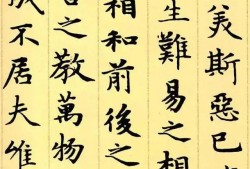 美斯惡已
生難易之相
相和前後之
言之教萬物
成不居夫唯